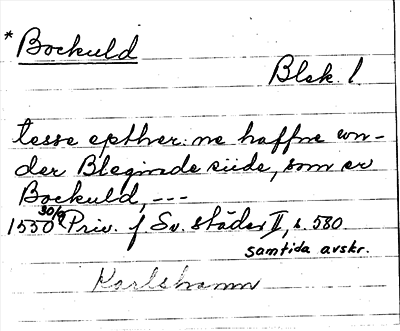 * Bockuld
Blek. l
tesse epther: ne haffne wn-
der Bleginde siide, som er
Bockuld, ---
1550 30/9 Priv. f Sv. städer II, s. 580
samtida avskr.
Karlshamn